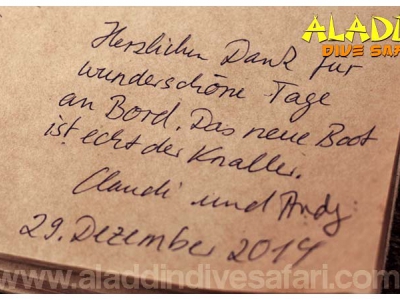 ALADD
DIVE SAF
Herzlichen Dank für
wunderschöne Tage
an Bord. Das neue Boot
ist echt der Knaller.
Claudi und Andy
29. Dezember 2014
www.aladdindivesafari.com